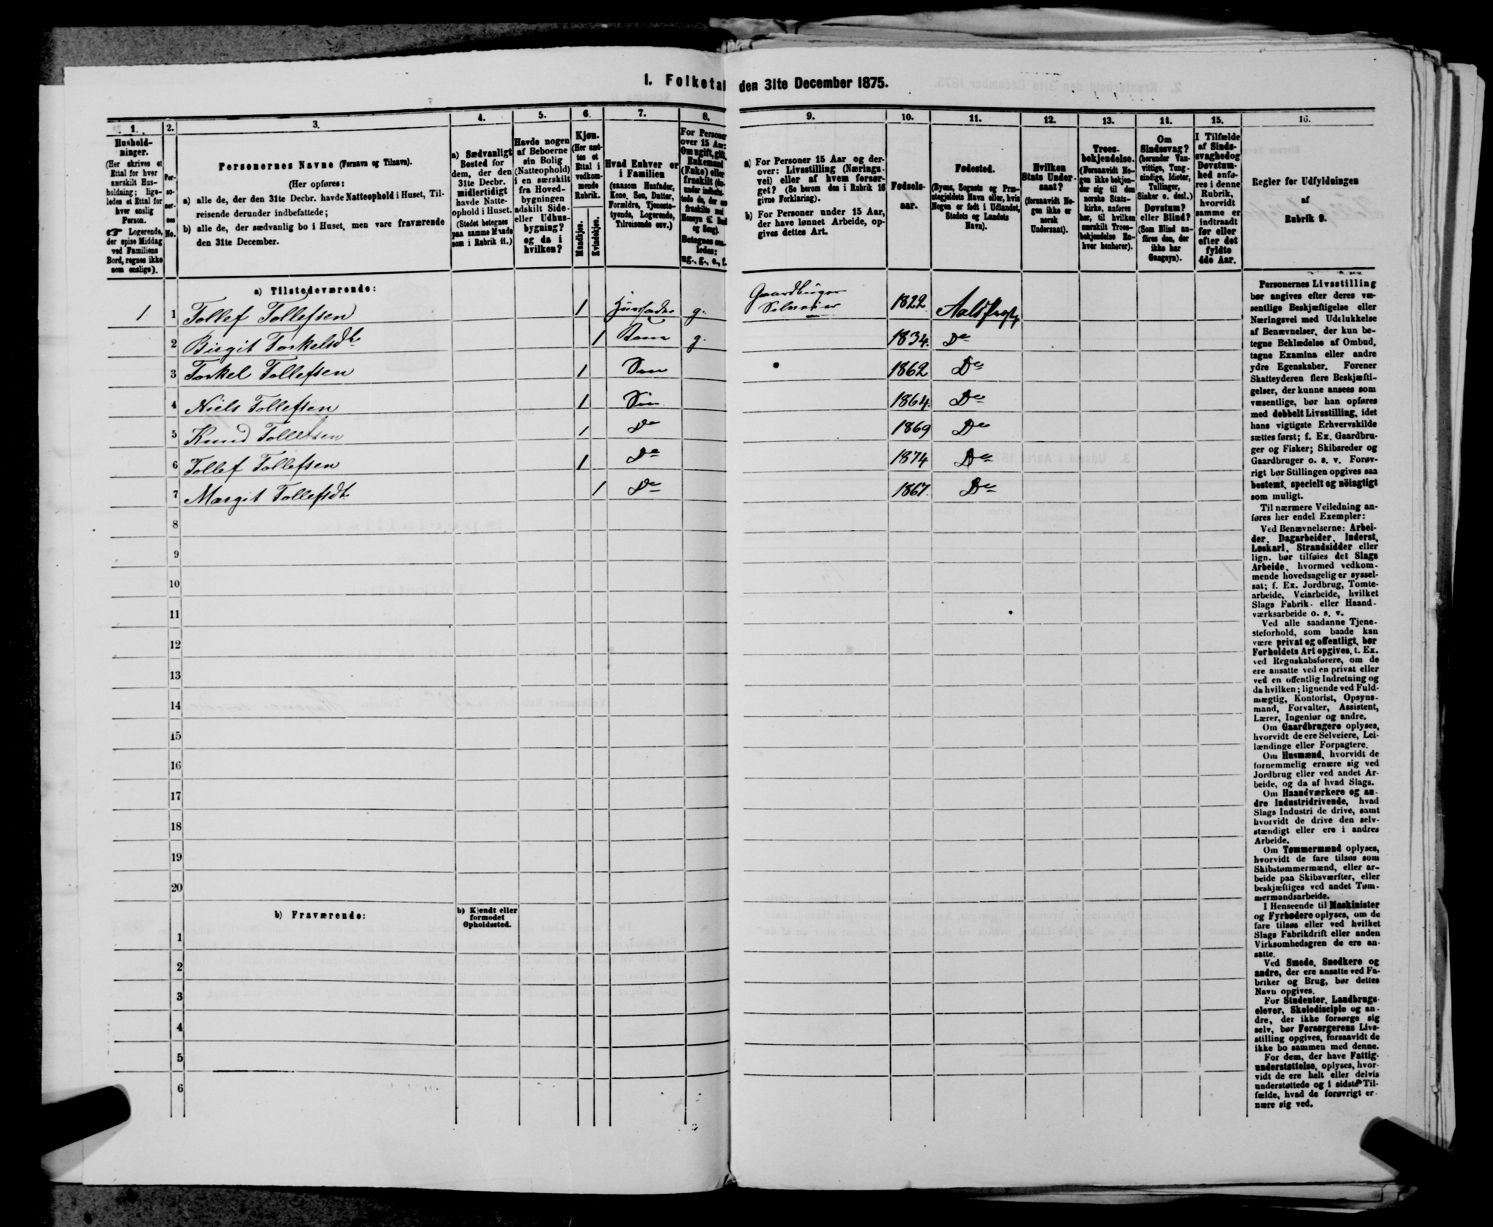 I. Folketal den 31te December 1875.
1.
Hushold-
ninger.
(Her skrives et
Ettal for hver
særskilt Hus-
holdning; lige-
ledes et Ettal for
hver enslig
Person.
☞ Logerende,
der spise Middag
ved Familiens
Bord, regnes ikke
som enslige).
2.
Per-
so-
ner-
nes
No.
3.
Personernes Navne (Fornavn og Tilnavn).
(Her opføres:
a) alle de, der den 31te Decbr. havde Natteophold i Huset, Til-
reisende derunder indbefattede;
b) alle de, der sædvanlig bo i Huset, men vare fraværende
den 31te December.
4.
a) Sædvanligt
Bosted for
dem, der den
31te Decbr.
midlertidigt
havde Natte-
ophold i Huset.
(Stedet betegnes
paa samme Maade
som i Rubrik 11.)
5.
Havde nogen
af Beboerne
sin Bolig
(Natteophold)
i en særskilt
fra Hoved-
bygningen
adskilt Side-
eller Udhus-
bygning?
og da i
hvilken?
6.
Kjøn.
(Her sæt-
tes et
Ettal i
vedkom-
mende
Rubrik.
Mandkjøn.
Kvindekjøn.
7.
Hvad Enhver er
i Familien
(saasom Husfader,
Kone, Søn, Datter,
Forældre, Tjeneste-
tyende, Logerende,
Tilreisende osv.)
8.
For Personer
over 15 Aar:
Om ugift, gift,
Enkemand
(Enke) eller
fraskilt
Betegnes saa-
ledes:
ug., g., e., f.
9.
a) For Personer 15 Aar og der-
over: Livsstilling (Nærings-
vei) eller af hvem forsør-
get? (Se herom den i Rubrik 16
givne Forklaring).
b) For Personer under 15 Aar,
der have lønnet Arbeide, op-
gives dettes Art.
10.
Fødsels-
aar.
11.
Fødested.
(Byens, Sognets og Præ-
stegjeldets Navn eller, hvis
Nogen er født i Udlandet,
Stedets og Landets
Navn).
12.
Hvilken
Stats Under-
saat?
(forsaavidt No-
gen ikke er
norsk
Undersaat).
13.
Troes-
bekjendelse.
(Forsaavidt No-
gen ikke bekjen-
der sig til den
norske Stats-
kirke, anføres
her, til hvilken
særskilt Troes-
bekjendelse En-
hver henhører).
14.
Om
Sindssvag?
(herunder Van-
vittige, Tung-
sindige, Idioter,
Tullinger,
Sinker o. desl.)
Døvstum?
eller Blind?
(Som Blind an-
føres den, der
ikke har
Gangsyn).
15.
I Tilfælde
af Sinds-
svaghed og
Døvstum-
hed anfø-
res i denne
Rubrik,
hvorvidt
samme er
indtraadt
før eller
efter det
fyldte
4de Aar.
16.
Regler for Udfyldningen
af
Rubrik 9.
a) Tilstedeværende:
1 1 Tollef Tollefsen 1 Husfader g. Gaardbruger Selveier 1822.
2 Birgit Torkelsdt. 1 Kone g. 1834. Do
3 Torkel Tollefsen 1 Søn 1862 Do
4 Niels Tollefsen 1 Søn 1864. Do
5 Knud Tollefsen 1 Do 1869 Do
6 Tollef Tollefsen 1 Do 1874 Do
7 Margit Tollefsdt. 1 Do 1867. Do
8
9
10
11
12
13
14
15
16
17
18
19
20
b) Fraværende:
b) Kjendt eller
formodet
Opholdssted.
1
2
3
4
5
6
Personernes Livsstilling
bør angives efter deres væ-
sentlige Beskjæftigelse eller
Næringsvei med Udelukkelse
af Benævnelser, der kun be-
tegne Beklædelse af Ombud,
tagne Examina eller andre
ydre Egenskaber. Forener
Skatteyderen flere Beskjæfti-
gelser, der kunne ansees som
væsentlige, bør han opføres
med dobbelt Livsstilling, idet
hans vigtigste Erhvervskilde
sættes først; f. Ex. Gaardbru-
ger og Fisker; Skibsreder og
Gaardbruger o. s. v. Forøv-
rigt bør Stillingen opgives saa
bestemt, specielt og nøiagtigt
som muligt.
Til nærmere Veiledning an-
føres her endel Exempler:
Ved Benævnelserne: Arbei-
der, Dagarbeider, Inderst,
Løskarl, Strandsidder eller
lign. bør tilføies det Slags
Arbeide, hvormed vedkom-
mende hovedsagelig er syssel-
sat; f. Ex. Jordbrug, Tomte-
arbeide, Veiarbeide, hvilket
Slags Fabrik- eller Haand-
værksarbeide o. s. v.
Ved alle saadanne Tjene-
steforhold, som baade kan
være privat og offentligt, bør
Forholdets Art opgives, t. Ex.
ved Regnskabsførere, om de
ere ansatte ved en privat eller
ved en offentlig Indretning og
da hvilken; lignende ved Fuld-
mægtig, Kontorist, Opsyns-
mand, Forvalter, Assistent,
Lærer, Ingeniør og andre.
Om Gaardbrugere oplyses,
hvorvidt de ere Selveiere, Lei-
lændinge eller Forpagtere.
Om Husmænd, hvorvidt de
fornemmelig ernære sig ved
Jordbrug eller ved andet Ar-
beide, og da af hvad Slags.
Om Haandværkere og an-
dre Industridrivende, hvad
Slags Industri de drive, samt
hvorvidt de drive den selv-
stændigt eller ere i andres
Arbeide.
Om Tømmermænd oplyses,
hvorvidt de fare tilsøs som
Skibstømmermænd, eller ar-
beide paa Skibsværfter, eller
beskjæftiges ved andet Tøm-
mermandsarbeide.
I Henseende til Maskinister
og Fyrbødere oplyses, om de
fare tilsøs eller ved hvilket
Slags Fabrikdrift eller anden
Virksomhedsgren de ere an-
satte.
Ved Smede, Snedkere og
andre, der ere ansatte ved Fa-
briker og Brug, bør dettes
Navn opgives.
For Studenter, Landbrugs-
elever, Skoledisciple og an-
dre, der ikke forsørge sig
selv, bør Forsørgerens Livs-
stilling opgives, forsaavidt de
ikke bo sammen med denne.
For dem, der have Fattig-
understøttelse, oplyses, hvor-
vidt de ere helt eller delvis
understøttede og i sidste Til-
fælde, hvad de forøvrigt er-
nære sig ved.